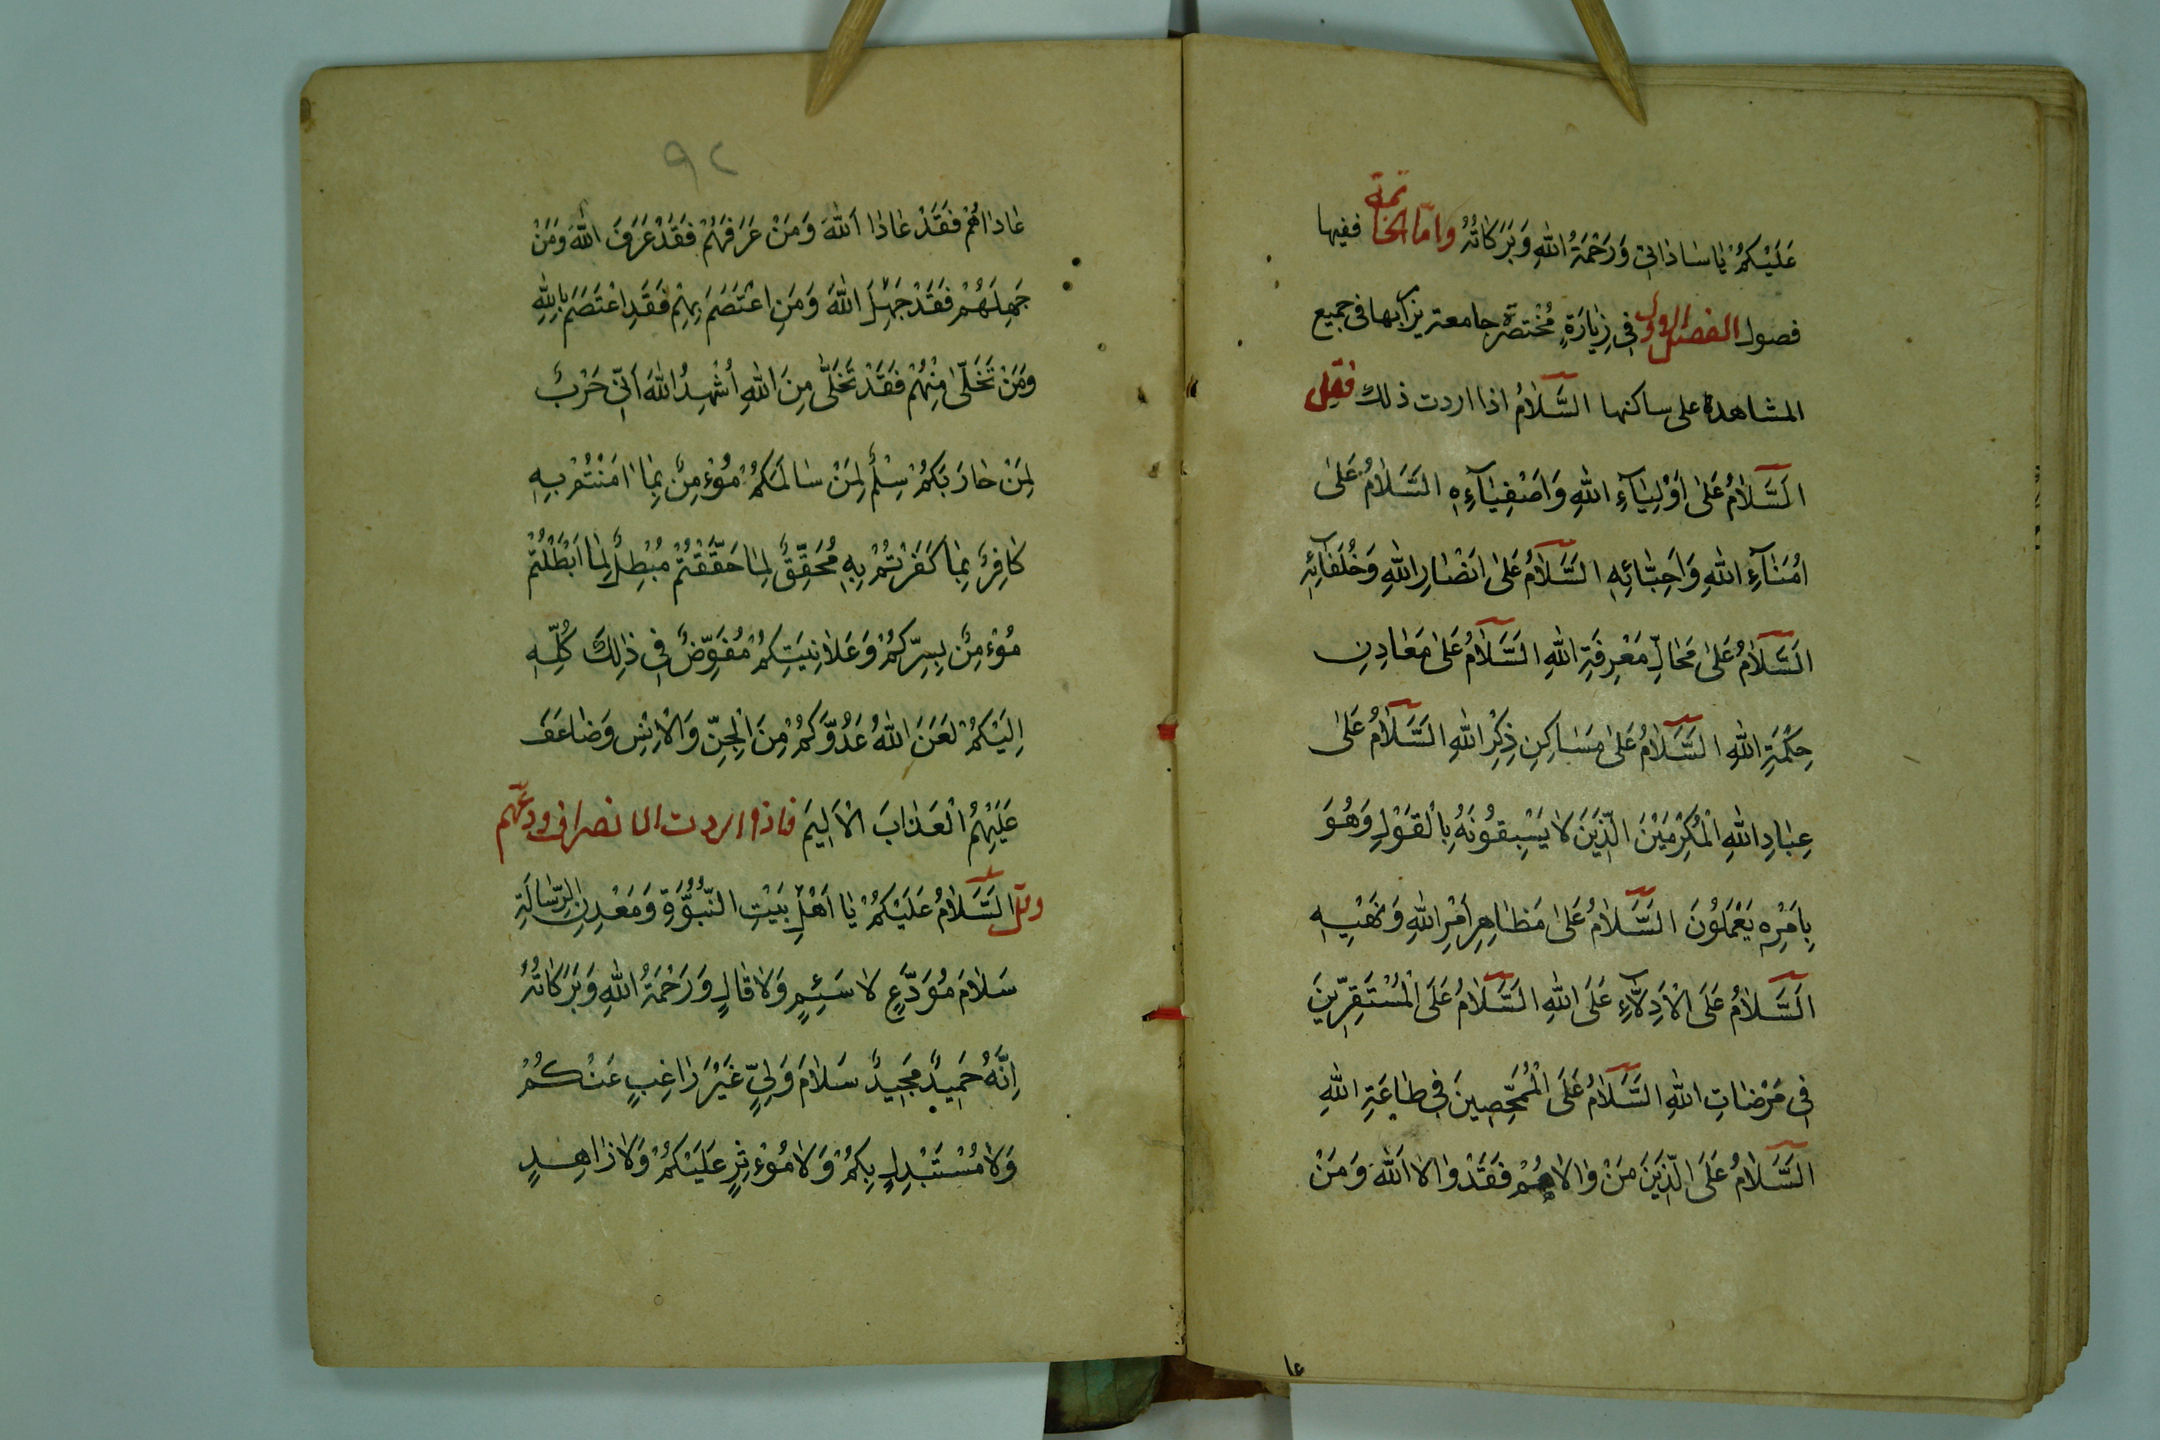 عَلَيْكُمْ يٰا سٰادٰاتي وَرَحْمَةُ اللهِ وَبَرَكٰاتُهُ وامّا الخاتمة ففيها
فصول الفصل الاول في زِيٰارَةٍ مُخْتصرَة جامعة يزار بها في جميع
المشاهدة على ساكنها السَّلٰامُ اذا اردت ذلك فقل
اَلسَّلٰامُ عَلىٰ اَوْلِيٰآءِ اللهِ وَاَصْفِيٰآءِهِ السَّلٰامُ عَلىٰ
اُمَنٰآءِ اللهِ وَاَحِبّٰائِهِ السَّلٰامُ عَلىٰ اَنْصٰارِ اللهِ وَخُلَفٰآئِهِ
اَلسَّلٰامُ عَلىٰ مَحٰالِّ مَعْرِفَةِ اللهِ السَّلٰامُ عَلىٰ مَعٰادِنِ
حِكْمَةِ اللهِ السَّلٰامُ عَلىٰ مَسٰاكِنِ ذِكْرِ اللهِ السَّلٰامُ عَلىٰ
عِبٰادِ اللهِ الْمُكْرَمَيْنَ الَّذيَنَ لا يَسْبِقوُنَهُ بِالْقَوْلِ وَهُوَ
بِاَمْرِهِ يَعْمَلَوُنَ السَّلٰامُ عَلىٰ مَظٰاهِرِ اَمْرِ اللهِ وَنَهْيِهِ
اَلسَّلٰامُ عَلَى الْاَدِلّٰآءِ عَلَى اللهِ السَّلٰامُ عَلَى الْمُسْتَقِرّينَ
في مَرْضٰاتِ اللهِ السَّلٰامُ عَلَى الْمُمَحَّصِينَ في طٰاعَةِ اللهِ
اَلسَّلٰامُ عَلَى الَّذيَنَ مَنْ وٰالٰاهُمْ فَقَدْ وٰالٰا اللهَ وَمَنْ
٩٢
عٰادٰاهُمْ فَقَدْ عٰادٰا اَللهَ وَمَنْ عَرَفَهُمْ فَقَدْ عَرَفَ اللهَ وَمَنْ
جَهِلَهُمْ فَقَدْ جَهِلَ اللهَ وَمَنِ اعْتَصَمَ بِهِمْ فَقَدِ اعْتَصَمَ بِاللهِ
وَمَنْ تَخَلّىٰ مِنْهُمْ فَقَدْ تَخَلّىٰ مِنَ اللهِ اُشْهِدُ اللهَ اَنّي حَرْبٌ
لِمَنْ حٰارَبَكُمْ سِلْمٌ لِمَنْ سٰالَمَكُمْ مُوْءمِنٌ بِمٰا اٰمَنْتُمْ بِهِ
كٰافِرٌ بِمٰا كَفَرْتُمْ بِهِ مُحَقِّقٌ لِمٰا حَقَّقْتُمْ مُبْطِلٌ لِمٰا اَبْطَلْتُمْ
مُوْءمِنٌ بِسِرِّكُمْ وَعَلٰانِيَتِكُمْ مُفَوِّضٌ في ذٰلِكَ كُلِّهِ
اِلَيْكُمْ لَعَنَ اللهُ عَدُوَّكُمْ مِنَ الْجِنِّ وَالْاِنْسِ وَضٰاعَفَ
عَلَيْهِمُ الْعَذٰابَ الْاَليَم فاذا اردت الانصراف ودعهم
وقل اَلسَّلٰامُ عَلَيْكُمْ يٰا اَهْلِ بَيْتِ النُّبُوَّةِ وَمَعْدِنِ الرِّسٰالَةِ
سَلٰامَ مُوَدِّعٍ لا سَئِمٍ وَلٰا قٰالٍ وَرَحْمَةُ اللهِ وَبَرَكٰاتُهُ
اِنَّهُ حَميدٌ مَجيدٌ سَلٰامَ وَلِيٍّ غَيْرَ رٰاغِبٍ عَنْكُمْ
وَلٰا مُسْتَبْدِلٍ بِكُمْ وَلٰا مُوْءثِرٍ عَلَيْكُمْ وَلٰا زٰاهِدٍ